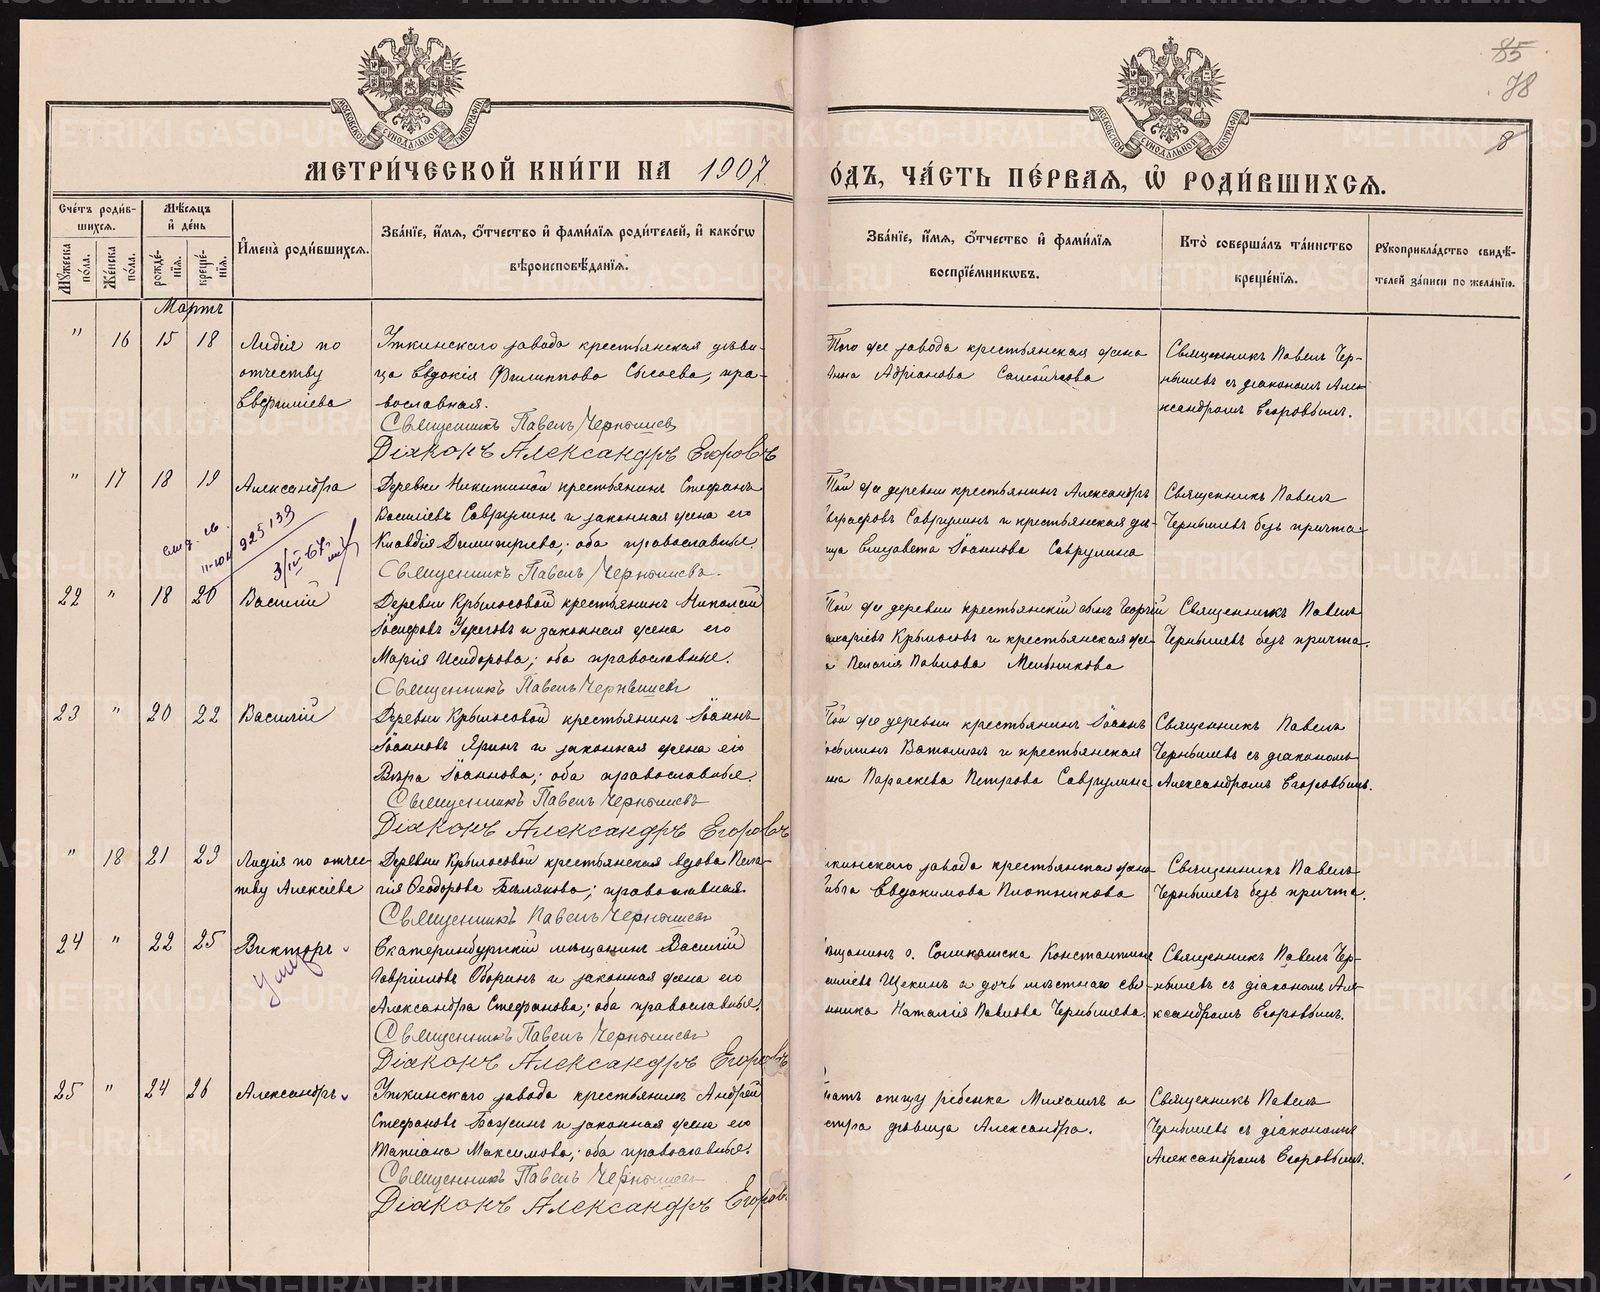 85
78
8
МЕТРИ́ЧЕСКОЙ КНИ́ГИ НА 1907
ОДЪ, ЧА́СТЬ ПЕ́РВАЯ, Ѡ РОДИ́ВШИХСЯ.
Счетъ роди́в-
шихся.
Мѣсяцъ
и де́нь
Имена̀ роди́вшихся.
Зва́нїе, и́мя, о́тчество и фами́лїя роди́телей, и како́гѡ
вѣроисповѣ́данїя.
Мꙋжеска по́ла.
Же́нска по́ла.
рожде́нїя.
креще́нїя.
Зва́нїе, и́мя, о́тчество и фами́лїя
воспрїе́мникѡвъ.
Кто̀ соверша́лъ та́инство
креще́нїя.
Рꙋкоприкла́дство свидѣ́-
телей за́писи по жела́нїю.
Мартъ
" 16 15 18 Лидія по
отчеству
Евфиміева
Уткинскаго завода крестьянская дѣви-
ца Евдокія Филиппова Сысоева, пра-
вославная.
Священникъ Павелъ Чернышевъ
Діаконъ Александръ Егоровъ
Того же завода крестьянская жена
Анна Адріанова
Священникъ Павелъ Чер-
нышевъ съ діакономъ Але-
ксандромъ Егоровымъ.
" 17 18 19 Александра
925133
3/IV-67
Деревни Никитиной крестьянинъ Стефанъ
Василіевъ Саврулинъ и законная жена его
Клавдія Димитріева; оба православные.
Священникъ Павелъ Чернышевъ.
Той же деревни крестьянинъ Александръ
Саврулинъ и крестьянская дѣ-
ца Елизавета Іоаннова Саврулина
Священникъ Павелъ
Чернышевъ безъ причта.
22 " 18 20 Василій
Деревни Крылосовой крестьянинъ Николай
Іосифовъ и законная жена его
Марія Исидорова; оба православные.
Священникъ Павелъ Чернышевъ
Той же деревни крестьянскій сынъ Георгій
Крылосовъ и крестьянская же-
а Пелагія Павлова Мельникова
Священникъ Павелъ
Чернышевъ безъ причта.
23 " 20 22 Василій
Деревни Крылосовой крестьянинъ Іоаннъ
Іоанновъ Яринъ и законная жена его
Вѣра Іоаннова; оба православные.
Священникъ Павелъ Чернышевъ
Діаконъ Александръ Егоровъ
Той же деревни крестьянинъ Іоаннъ
Ватолинъ и крестьянская
на Параскева Петрова Саврулина
Священникъ Павелъ
Чернышевъ съ діакономъ
Александромъ Егоровымъ.
" 18 21 23 Лидія по отче-
тву Алексіева
Деревни Крылосовой крестьянская вдова Пела-
гія Ѳеодорова Бѣлякова; православная.
Священникъ Павелъ Чернышевъ
ткинскаго завода крестьянская жена
Евдокимова Плотникова
Священникъ Павелъ
Чернышевъ безъ причта.
24 " 22 25 Викторъ
умеръ
Екатеринбургскій мѣщанинъ Василій
Гавріиловъ Оборинъ и законная жена его
Александра Стефанова; оба православные.
Священникъ Павелъ Чернышевъ
Діаконъ Александръ Егоровъ
ѣщанинъ г. Соликамска Константинъ
Щекинъ и дочь мѣстнаго свя-
нника Наталія Павлова Чернышева.
Священникъ Павелъ Чер-
нышевъ съ діакономъ Але-
ксандромъ Егоровымъ.
25 " 24 26 Александръ
Уткинскаго завода крестьянинъ Андрей
Стефановъ Бажинъ и законная жена его
Татіана Максимова; оба православные.
Священникъ Павелъ Чернышевъ
Діаконъ Александръ Егоровъ.
братъ отцу ребенка Михаилъ и
естра дѣвица Александра.
Священникъ Павелъ
Чернышевъ съ діакономъ
Александромъ Егоровымъ.